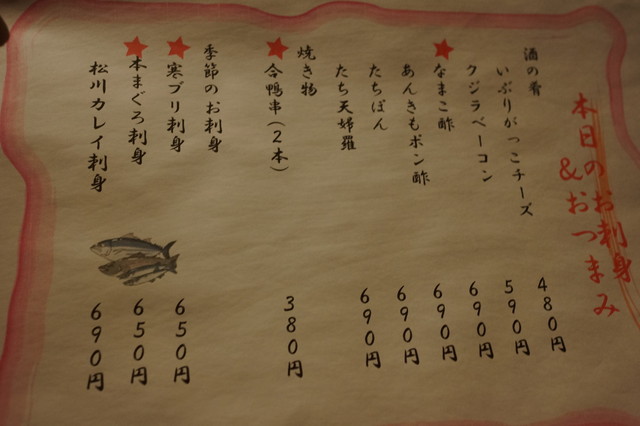 本日のお刺身
&おつまみ
酒の肴
いぶりがっこチーズ 480円
クジラベーコン 590円
なまこ酢 690円
あんきもポン酢 690円
たちぽん 690円
たち天婦羅 690円
焼き物
合鴨串(2本) 380円
季節のお刺身
寒ブリ刺身 650円
本まぐろ刺身 650円
松川カレイ刺身 690円